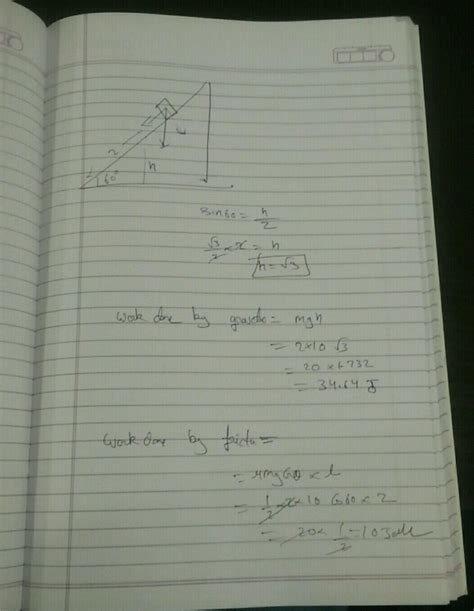 2
60°
h
sin60 = h/2
√3/2 × x = h
h = √3
Work done by = mgh
= 2×10 √3
= 20 × 1.732
= 34.64 J
Work done by =
= μmg cosθ × l
= 1/2 × 2 × 10 Cos60 × 2
= 20 × 1/2 = 10 Joule